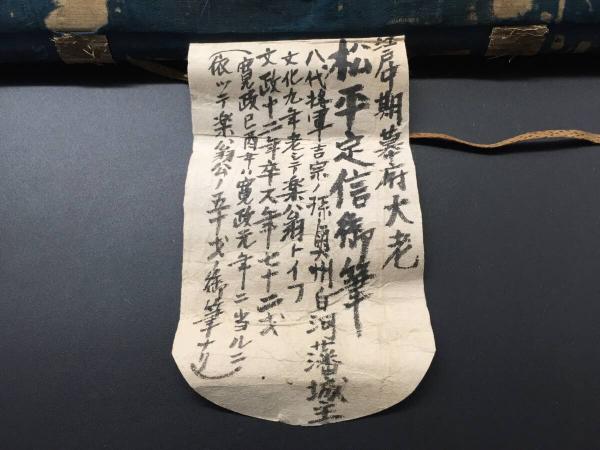 江戸中期幕府大老
松平定信御筆
八代将軍吉宗ノ孫奥州白河藩城主
文化九年老シテ楽翁トイフ
文政十二年卒ス年七十二才
(寛政己酉年ハ寛政元年ニ当ルニ
依ツテ楽翁公ノ五十才ノ御筆ナリ)